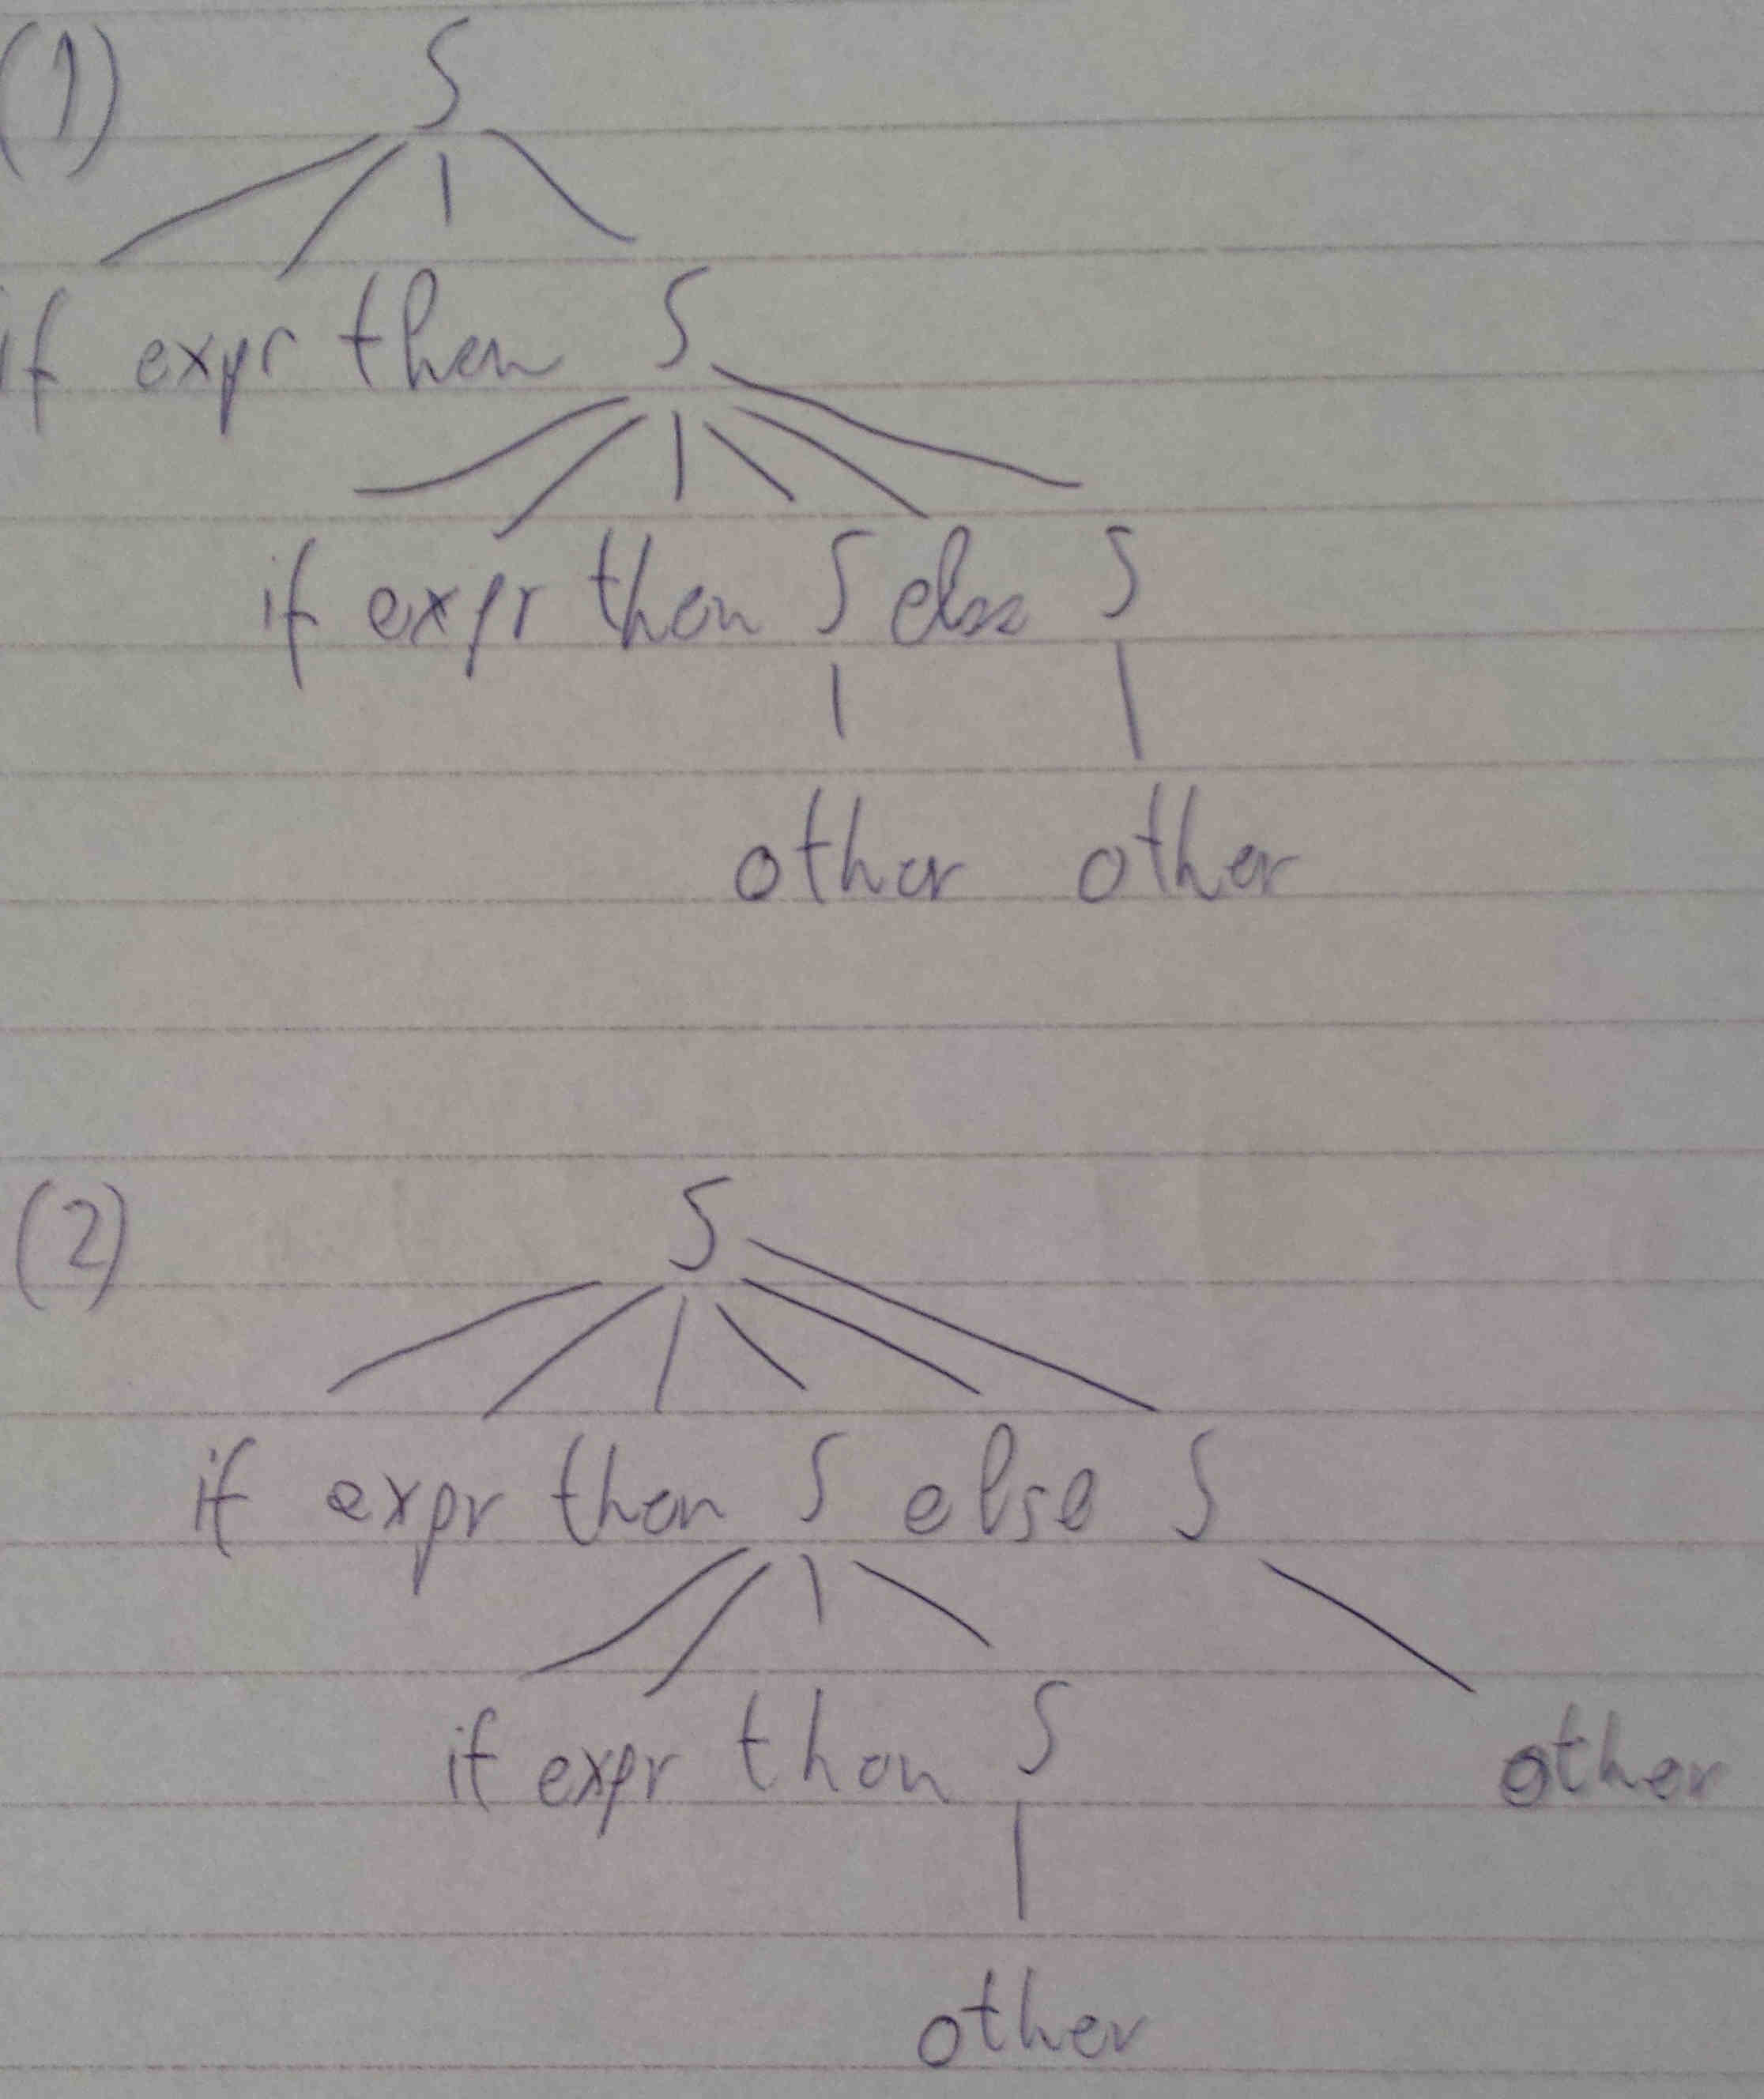 (1) S
if expr then S
if expr then S else S
other other
(2) S
if expr then S else S
if expr then S other
other